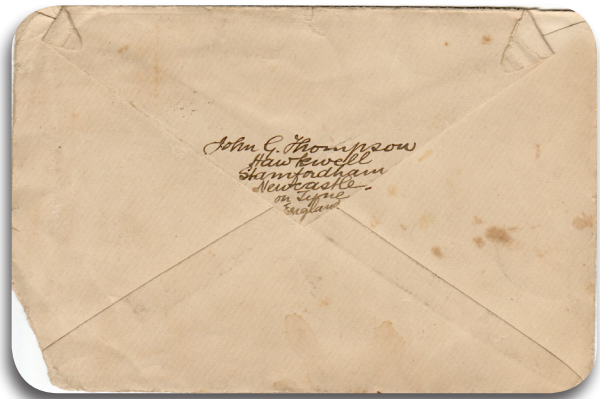 John G. Thompson
Hawkwell
Stamfordham
Newcastle.
on Tyne
England